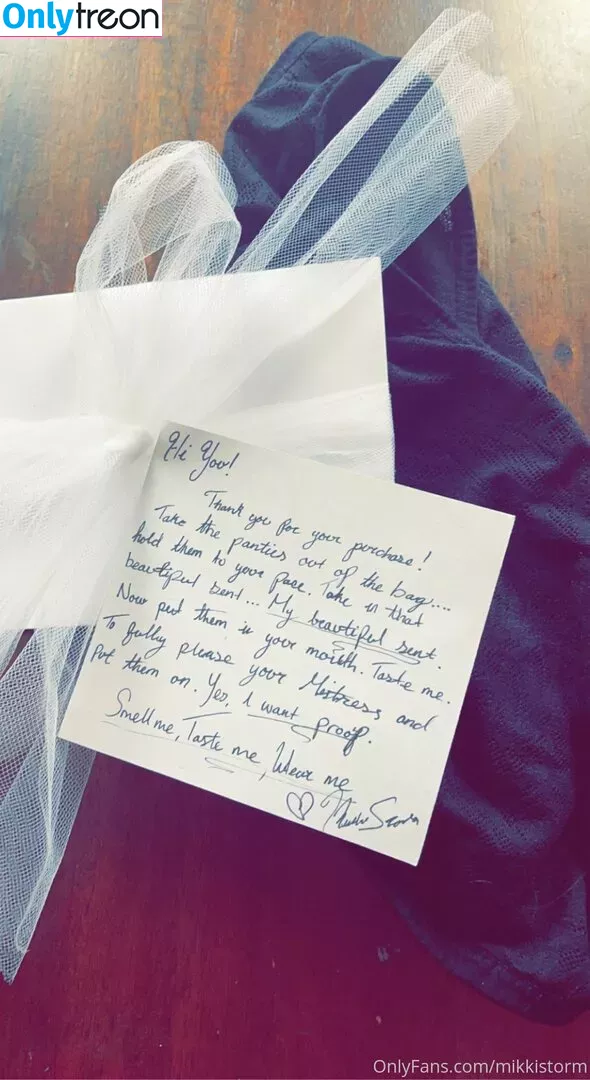 Onlytreon
Hi You!
Thank you for your purchase!
Take the panties out of the bag....
hold them to your face. Take in that
beautiful sent... My beautiful sent.
Now put them in your mouth. Taste me.
To fully please your Mistress and
Put them on. Yes, I want proof.
Smell me, Taste me, Wear me
OnlyFans.com/mikkistorm